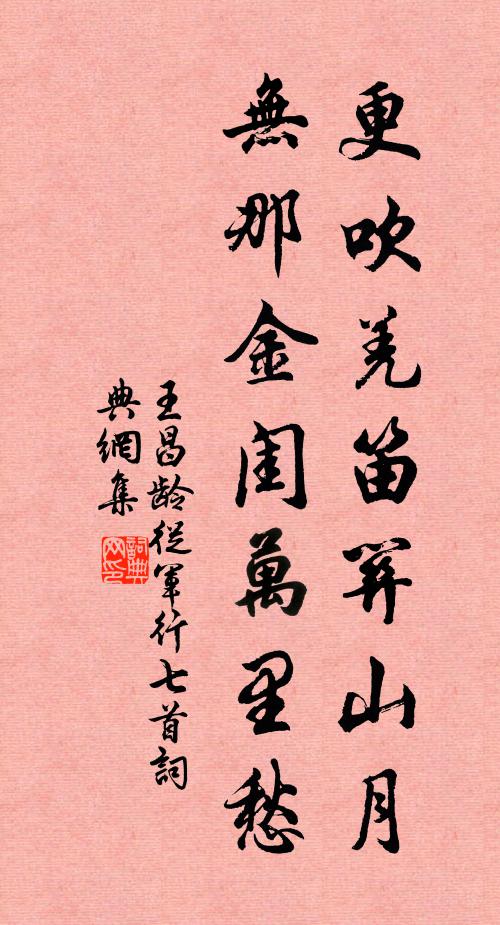 更吹羌笛關山月
無那金閨萬里愁
王昌齡從軍行七首詞
典網集
詞典
网印